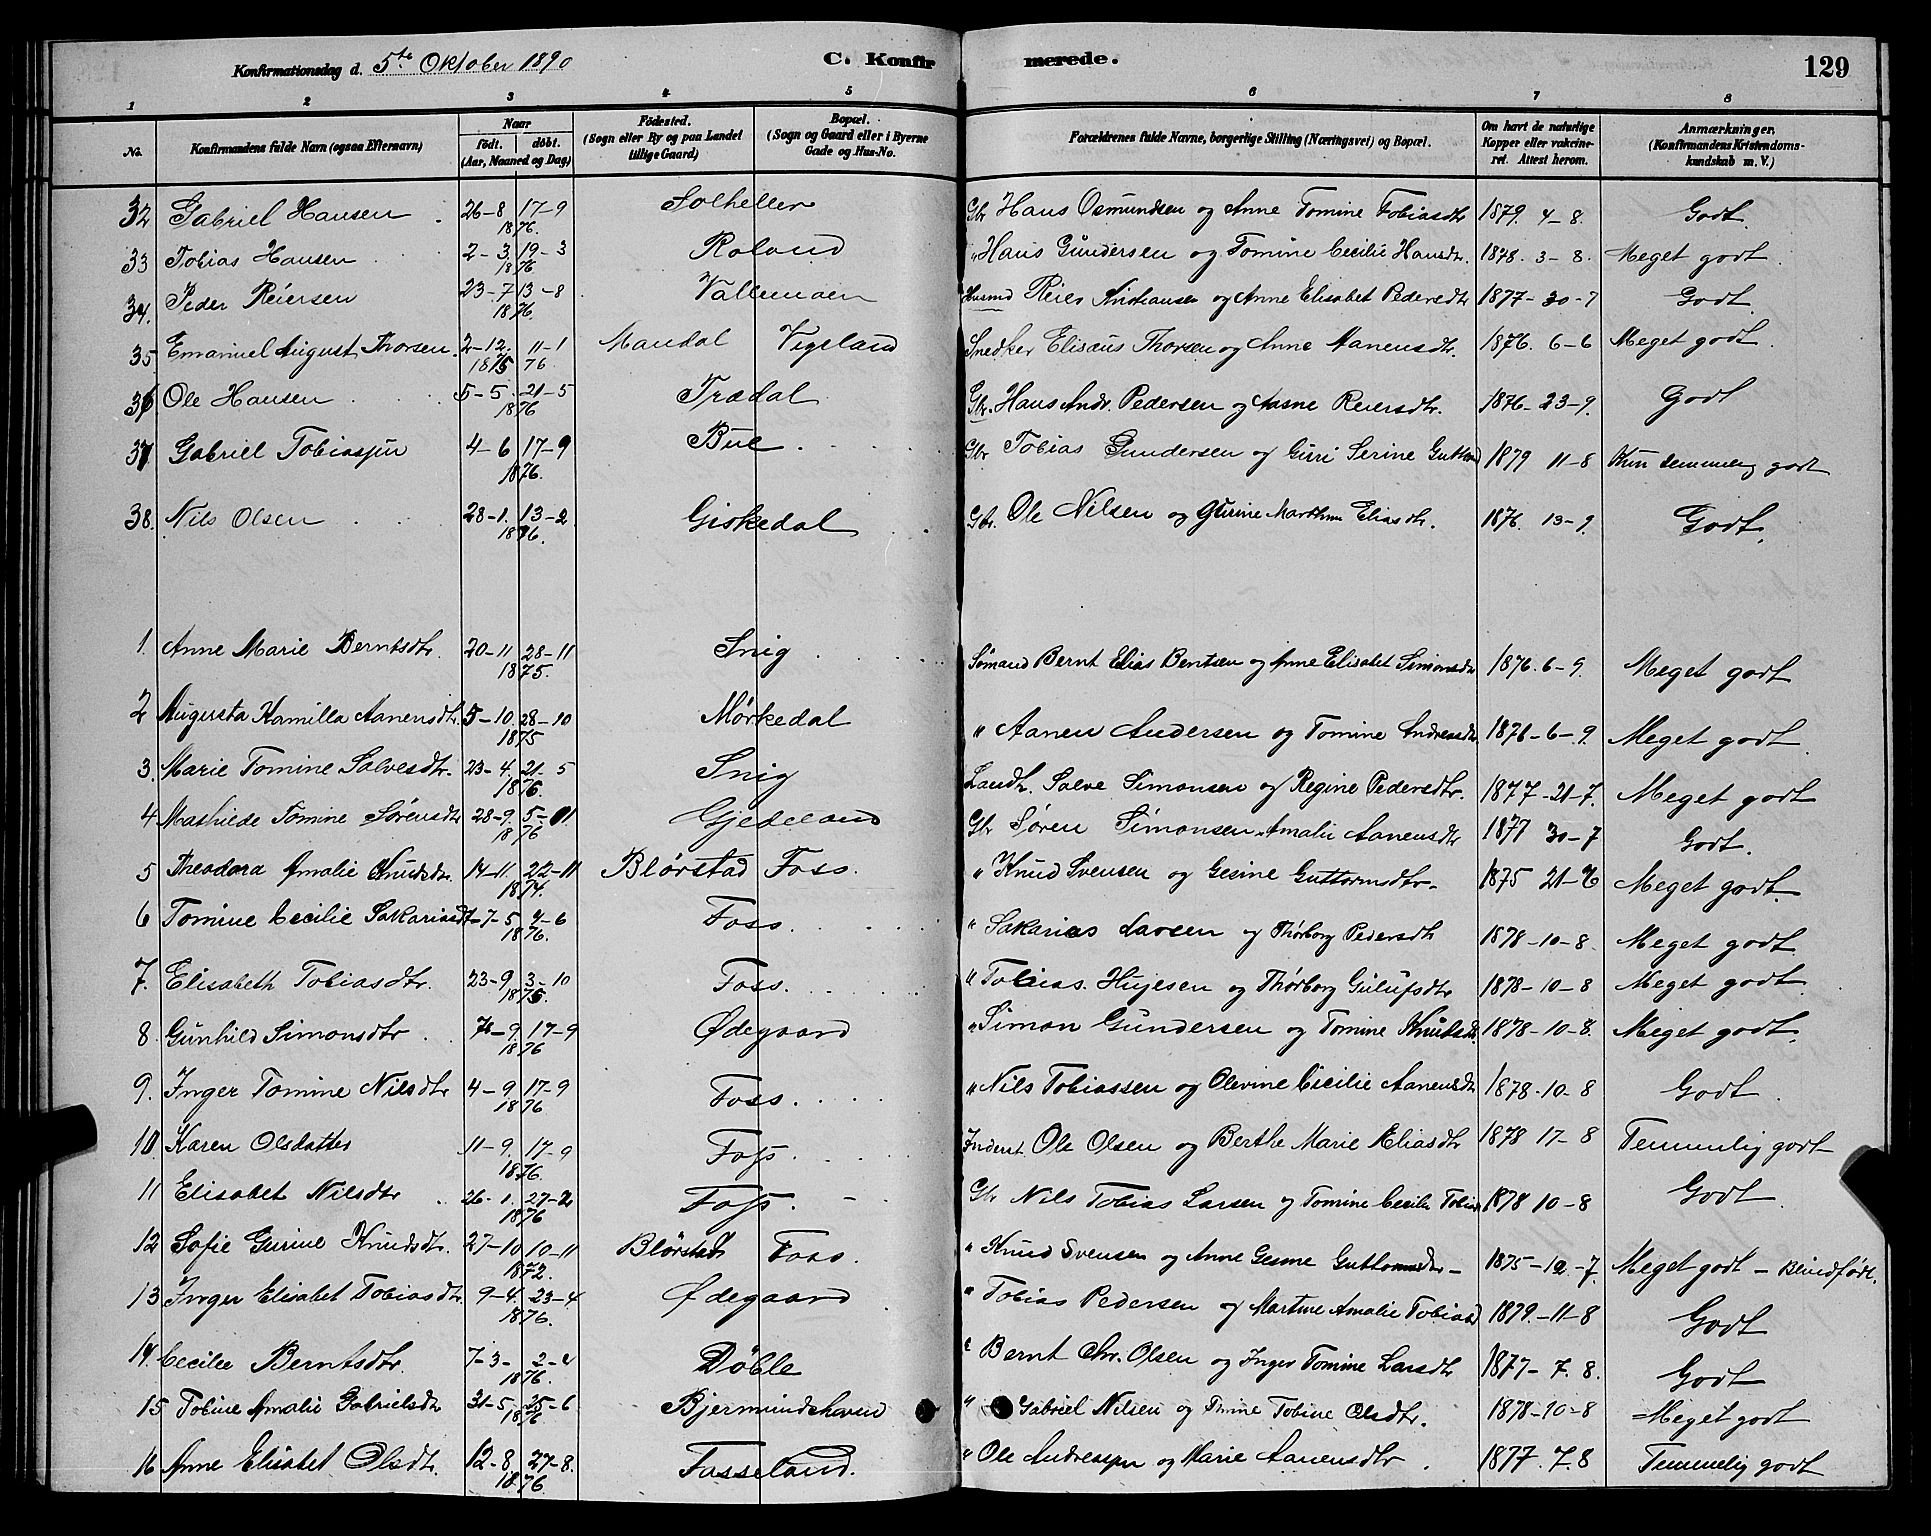 Konfirmationsdag d. 5te Oktober 1890 C. Konfirmerede. 129
1 2 3 4 5 6 7 8
No. Konfirmandens fulde Navn (ogsaa Efternavn) Naar født. døbt. (Aar, Maaned og Dag) Födested. (Sogn eller By og paa Landet tillige Gaard) Bopæl. (Sogn og Gaard eller i Byerne Gade og Hus-No. Forældrenes fulde Navne, borgerlige Stilling (Næringsvei) og Bopæl. Om havt de naturlige Kopper eller vakcineret. Attest herom. Anmærkninger. (Konfirmandens Kristendomskundskab m. V.)
32 Gabriel Hansen 26-8 17-9 1876. Solheller Gbr Hans Osmundsen og Anne Tomine Tobiasdtr 1879. 4-8. Godt.
33 Tobias Hansen 2-3. 19-3 1876 Roland " Hans Gundersen og Tomine Cecilie Hansdtr. 1878. 3-8. Meget godt.
34. Peder Reiersen 23-7 13-8 1876. Vallemoen Husmd Reier Kristiansen og Anne Elisabet Pedersdtr 1877-30-7 Godt.
35 Emanuel August Thorsen. 2-12. 1875 11-1 76 Mandal Vigeland Snedker Elisæus Thorsen og Anne Aanensdtr. 1876. 6-6 Meget godt.
36 Ole Hansen 5-5. 21-5 1876 Trædal Gbr. Hans Andr. Pedersen og Aasne Reiersdtr. 1876-23-9. Godt
37 Gabriel Tobiassen 4-6 17-9 1876. Bue Gbr Tobias Gundersen og Gurri Serine 1879 11-8 Kun temmelig godt
38. Nils Olsen 28-1. 13-2 1876. Giskedal Gbr. Ole Nilsen og Gurine Marthine Eliasdtr. 1876. 13-9. Godt.
1. Anne Marie Berntsdtr. 20-11 28-11 1875. Snig Sömand Bernt Elias Bentsen og Anne Elisabet Simonsdtr 1876. 6-9. Meget godt
2 Augusta Kamilla Aanensdtr. 5-10. 28-10 1875 Mørkedal " Aanen Andersen og Tomine Andreasdtr. 1876-6-9. Meget godt.
3. Marie Tomine Salvesdtr. 23-4. 21-5 1876. Snig Landh. Salve Simonsen og Regine Pedersdtr. 1877-21-7. Meget godt
4 Mathilde Tomine Sørensdtr 28-9. 5-11. 1876 Gjedeland Gbr Søren Simonsen Amalie Aanensdtr 1877 30-7 Godt.
5 Theodora Amalie Knudsdtr. 14-11. 22-11 1874. Blørstad Foss. " Knud Svensen og Gesine Guttormsdtr- 1875 21-6 Meget godt.
6 Tomine Cecilie Sakariasdtr 7-5. 4-6 1876. Foss. " Sakarias Larsen og Thørborg Pedersdtr 1878-10-8. Meget godt
7. Elisabeth Tobiasdtr. 23-9. 3-10 1875. Foss. " Tobias 1878-10-8 Meget godt
8. Gunhild Simonsdtr 7-9. 17-9 1876 Ødegaard " Simon Gundersen og Tomine Knudsdtr. 1878-10-8. Meget godt.
9. Inger Tomine Nilsdtr 4-9. 17-9 1876. Foss. " Nils Tobiassen og Olevine Cecilie Aanensdtr 1878-10-8 Godt.
10. Karen Olsdatter 11-9. 17-9 1876. Foss. Inderst. Ole Olsen og Berthe Marie Eliasdtr 1878 17-8 Temmelig godt
11 Elisabet Nilsdtr 26-1. 27-2 1876 Foss. Gbr Nils Tobias Larsen og Tomine Cecilie Tobias 1878 10-8 Godt
12 Sofie Gurine Knudsdtr. 27-10 10-11 1872. Blørstad Foss. " Knud Svensen og Anne Gesine Guttormsdtr- 1875-12-7. Meget godt - Blindfødt.
13 Inger Elisabet Tobiasdtr. 9-4. 23-4 1876. Ødegaard " Tobias Pedersen og Martine Amalie Tobiasd 1879.-11-8 Godt
14. Cecilie Berntsdtr. 7-3- 2-4 1876. Döble " Bernt Chr. Olsen og Inger Tomine Larsdtr 1877-7.8. Godt
15 Tobine Amalie Gabrielsdtr 31-5. 25-6 1876 Bjermundshavn " Gabriel Nilsen og Trine Tobine Olsdtr. 1878-10-8 Meget godt
16 Anne Elisabet Olsdtr. 12-8. 27-8. 1876. Fasseland. " Ole Andreassen og Marie Aanensdtr. 1877. 7.8 Temmelig godt